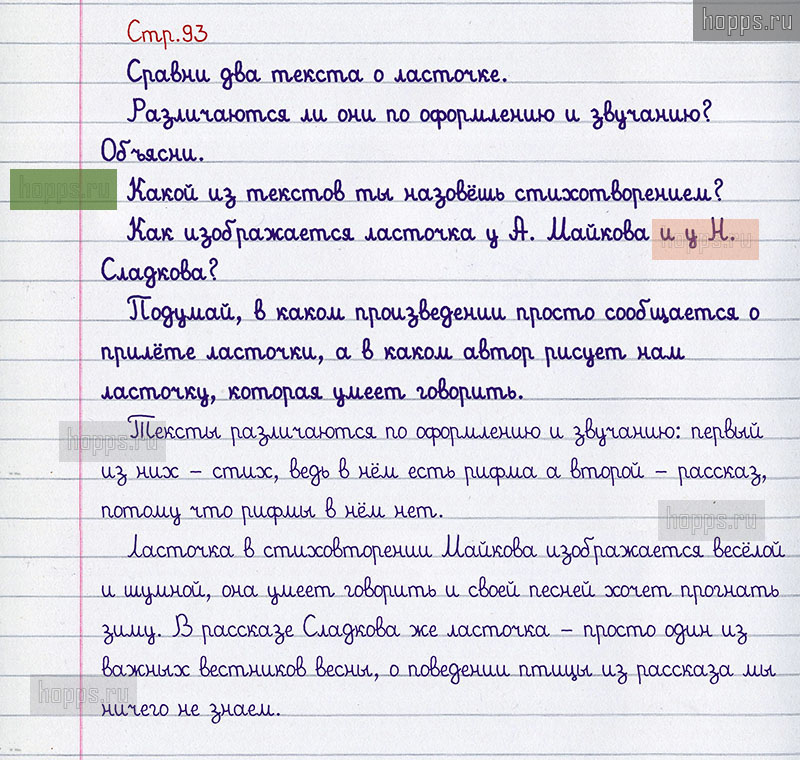 hopps.ru
Стр.93
Сравни два текста о ласточке.
Различаются ли они по оформлению и звучанию?
Объясни.
hopps.ru
Какой из текстов ты назовёшь стихотворением?
Как изображается ласточка у А. Майкова и у Н.
hopps.ru
Сладкова?
Подумай, в каком произведении просто сообщается о
прилёте ласточки, а в каком автор рисует нам
ласточку, которая умеет говорить.
hopps.ru
Тексты различаются по оформлению и звучанию: первый
из них – стих, ведь в нём есть рифма а второй – рассказ,
потому что рифмы в нём нет.
hopps.ru
Ласточка в стиховторении Майкова изображается весёлой
и шумной, она умеет говорить и своей песней хочет прогнать
зиму. В рассказе Сладкова же ласточка – просто один из
важных вестников весны, о поведении птицы из рассказа мы
hopps.ru
ничего не знаем.